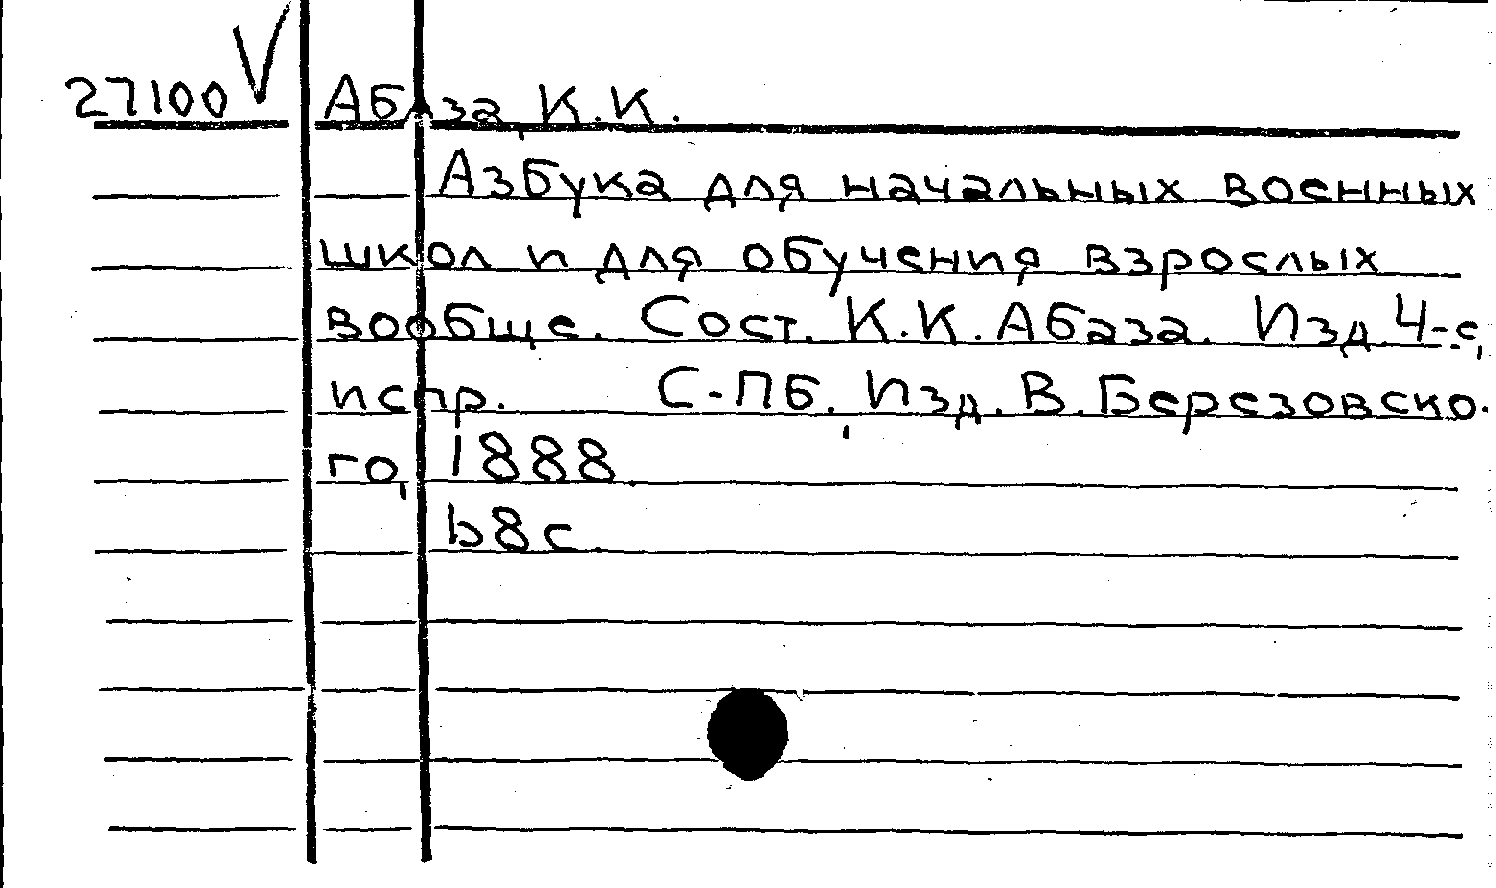 27100 V Абаза, К.К.
Азбука для начальных военных
школ и для обучения взрослых
вообще. Сост. К.К. Абаза. Изд. 4-е,
испр. С-ПБ, Изд. В. Березовско-
го, 1888.
68 с.